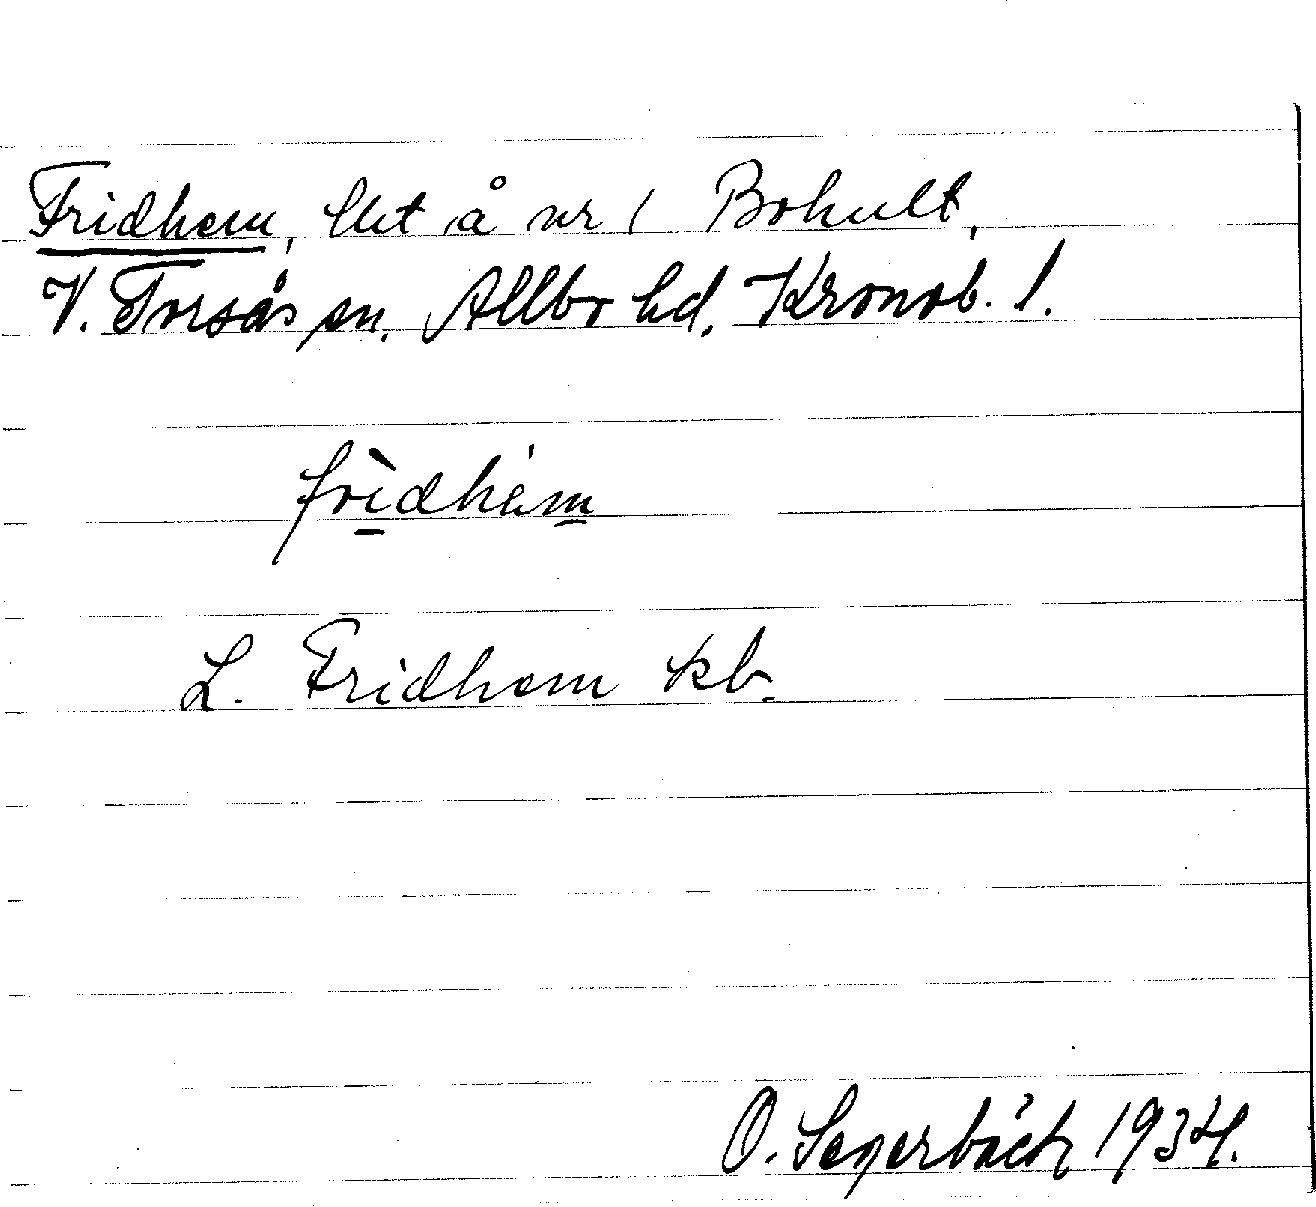 Fridhem, lht å nr 1 Bohult,
V. Torsås sn. Allbo hd, Kronob. l.
fridhem
L. Fridhem kb.
O. Segerbäck 1934.